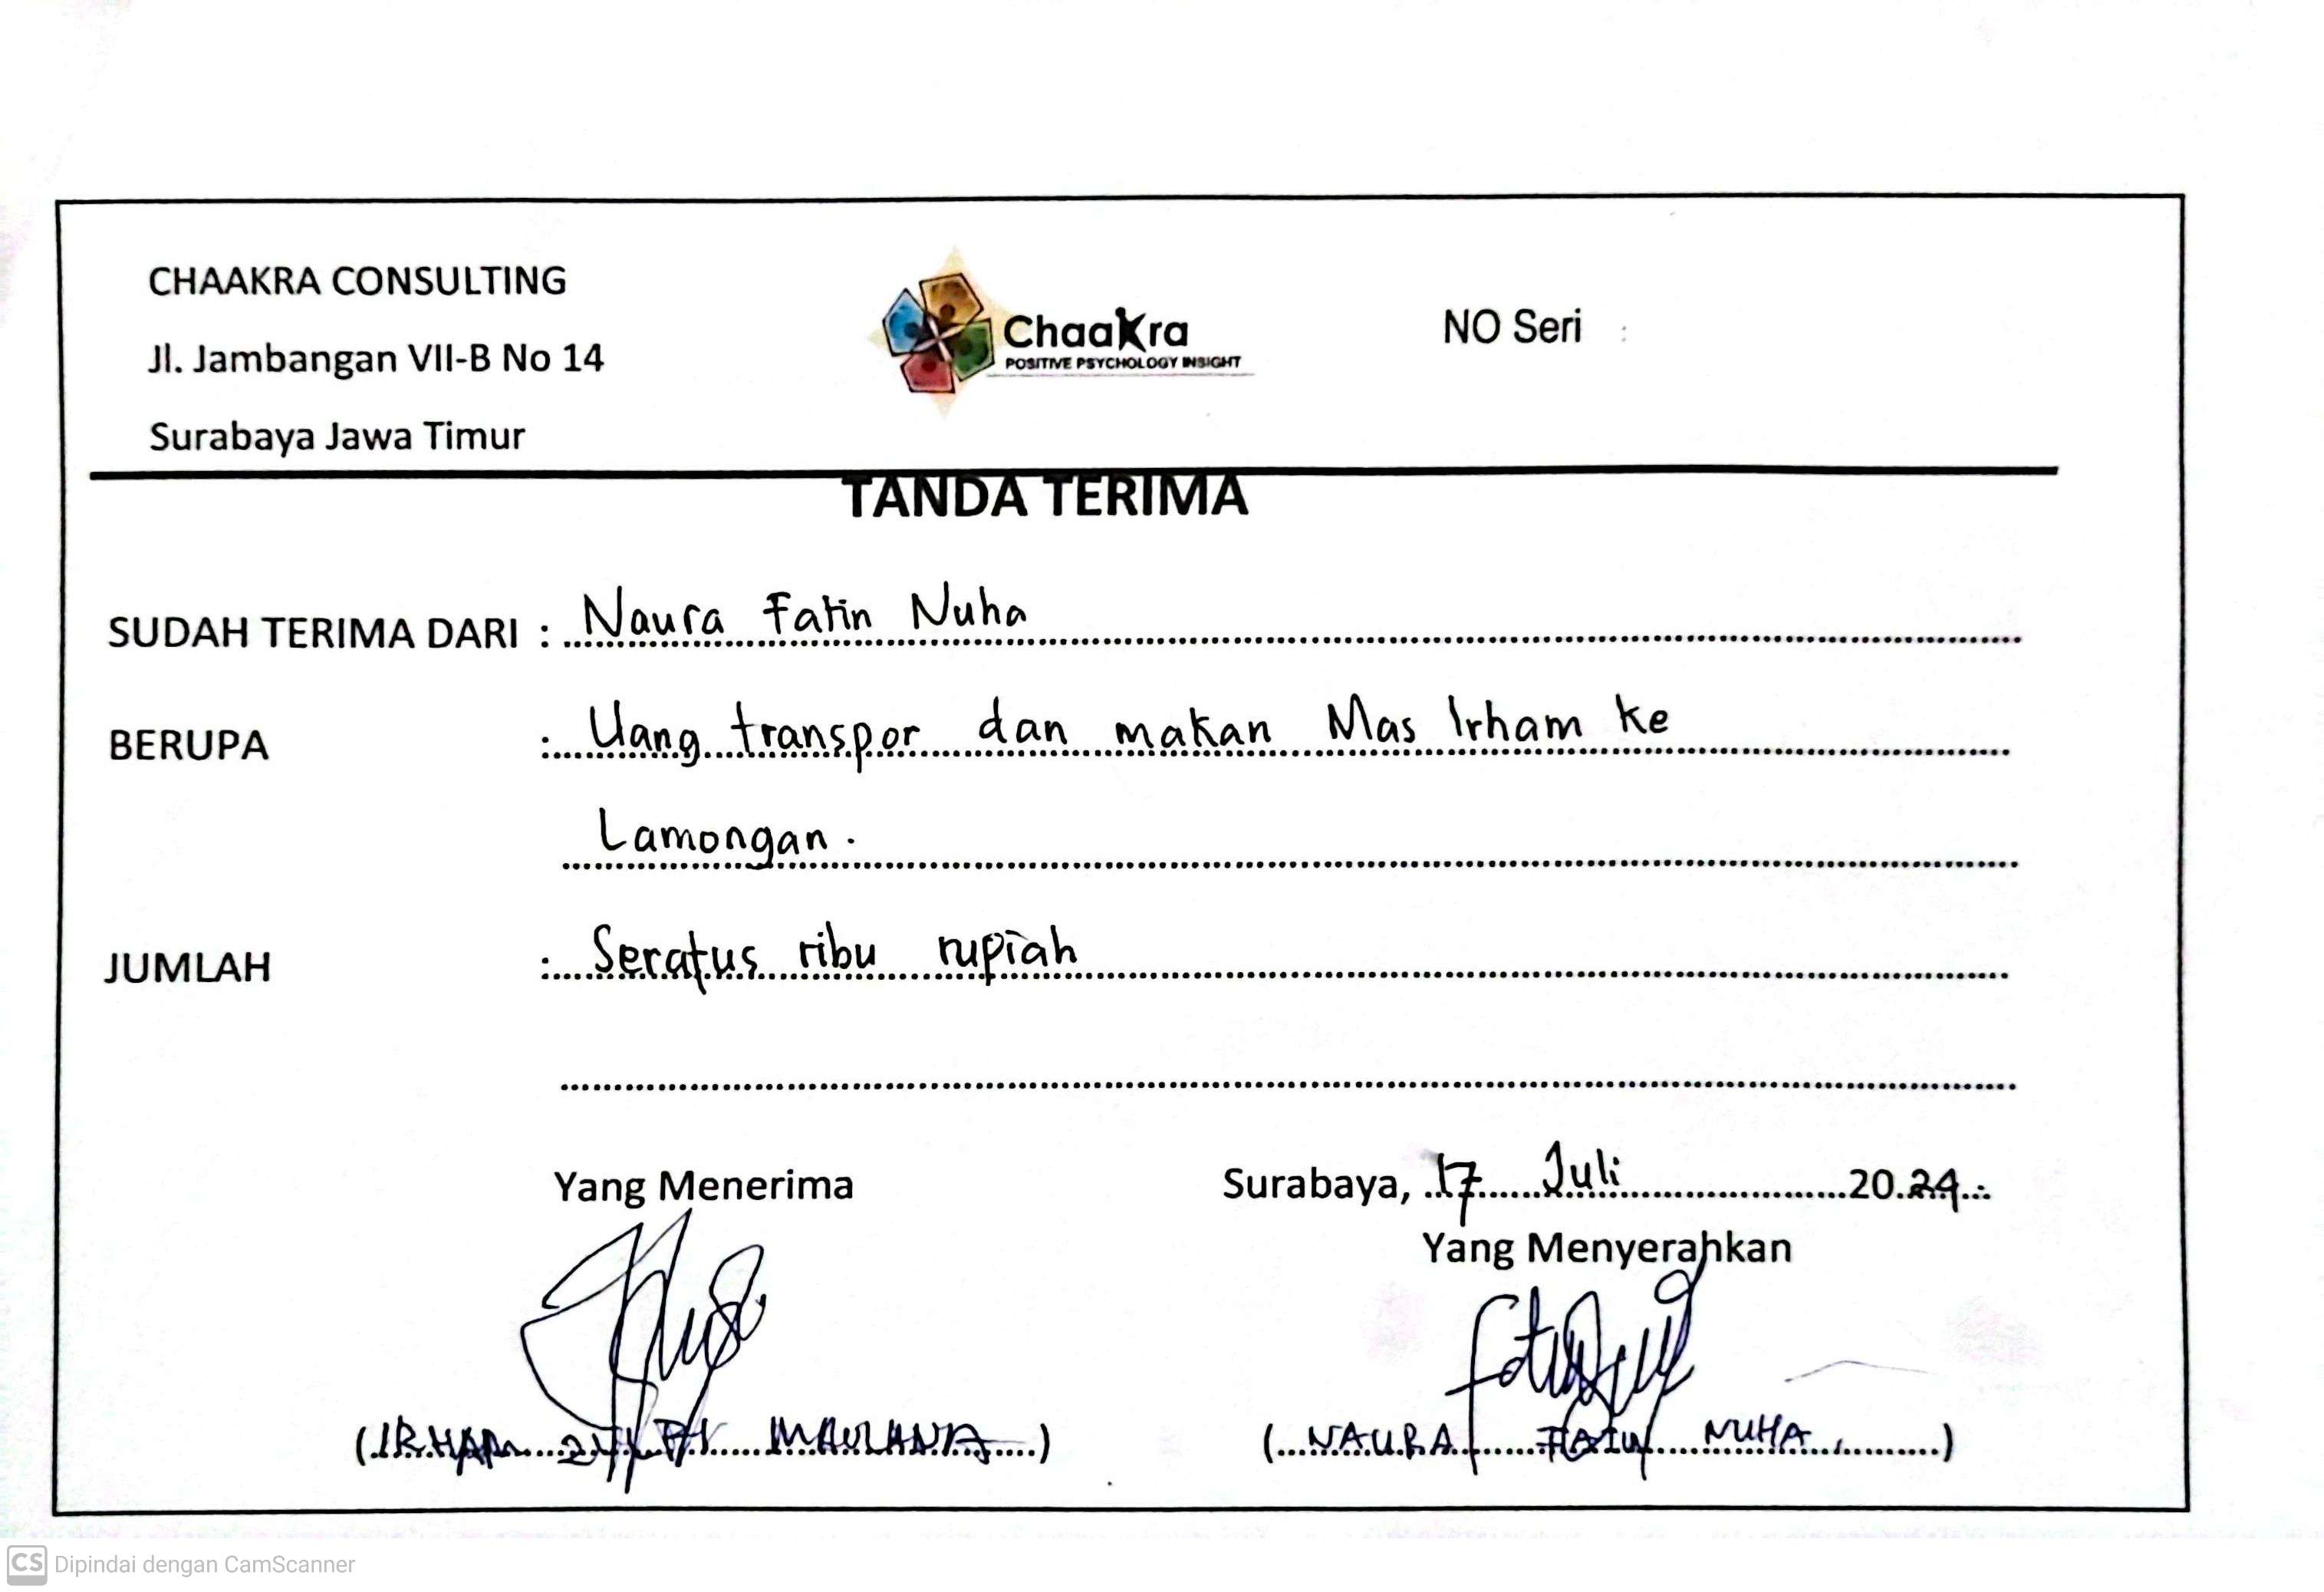 CHAAKRA CONSULTING
Jl. Jambangan VII-B No 14
Surabaya Jawa Timur
Chaakra
POSITIVE PSYCHOLOGY INSIGHT
NO Seri :
TANDA TERIMA
SUDAH TERIMA DARI : Naura Fatin Nuha
BERUPA : Uang transpor dan makan Mas Irham ke
Lamongan.
JUMLAH : Seratus ribu rupiah
Yang Menerima
Surabaya, 17 Juli 2024
Yang Menyerahkan
(IRHAM MAULANA)
(NAURA FATIN NUHA)
CS Dipindai dengan CamScanner